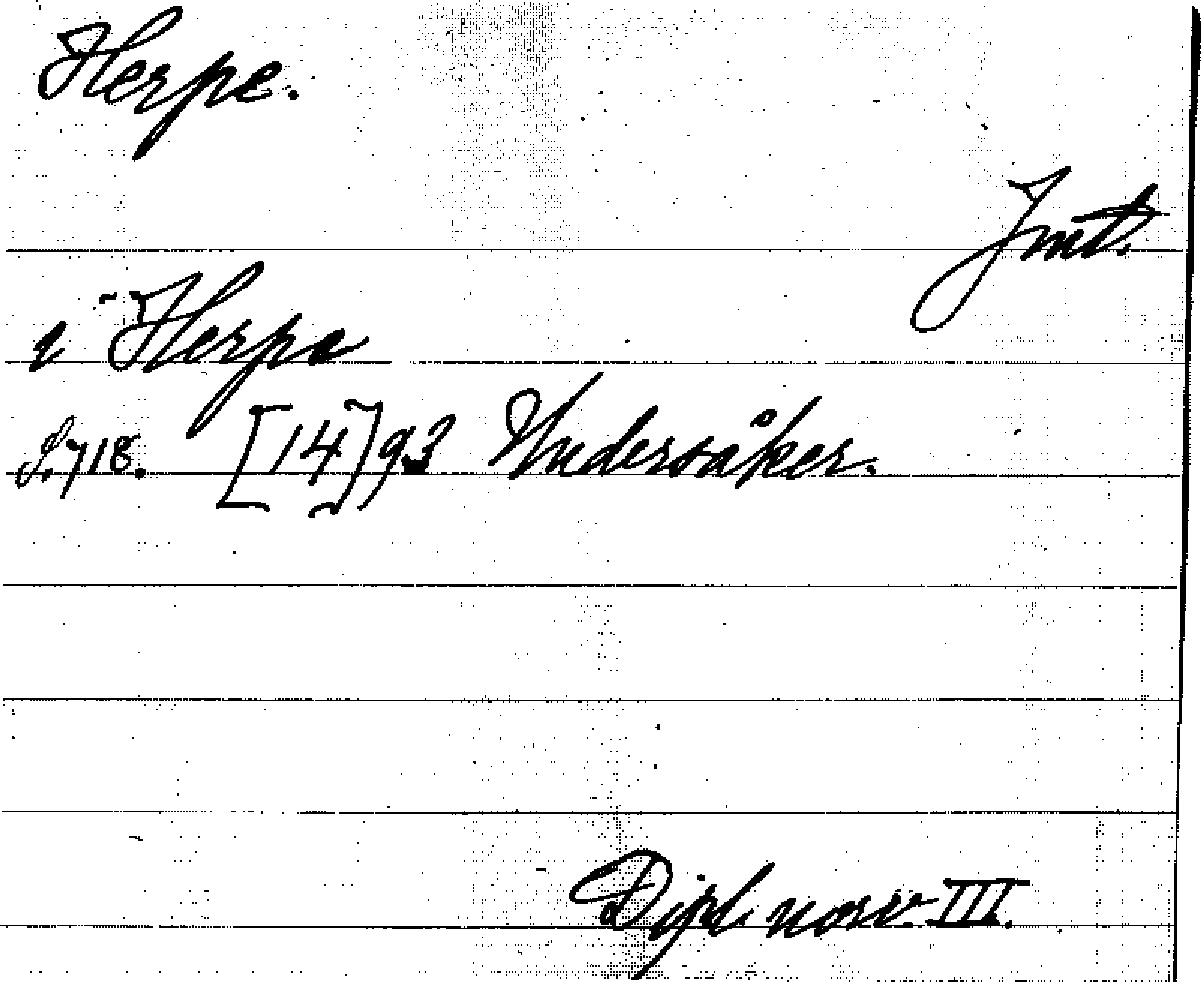 Herpe.
Jmt.
i Herpa
S. 718. [14]93 Undersåker.
Dipl. norv. III.